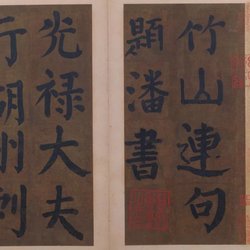 竹山連句
題潘書
光祿大夫
行湖州刺